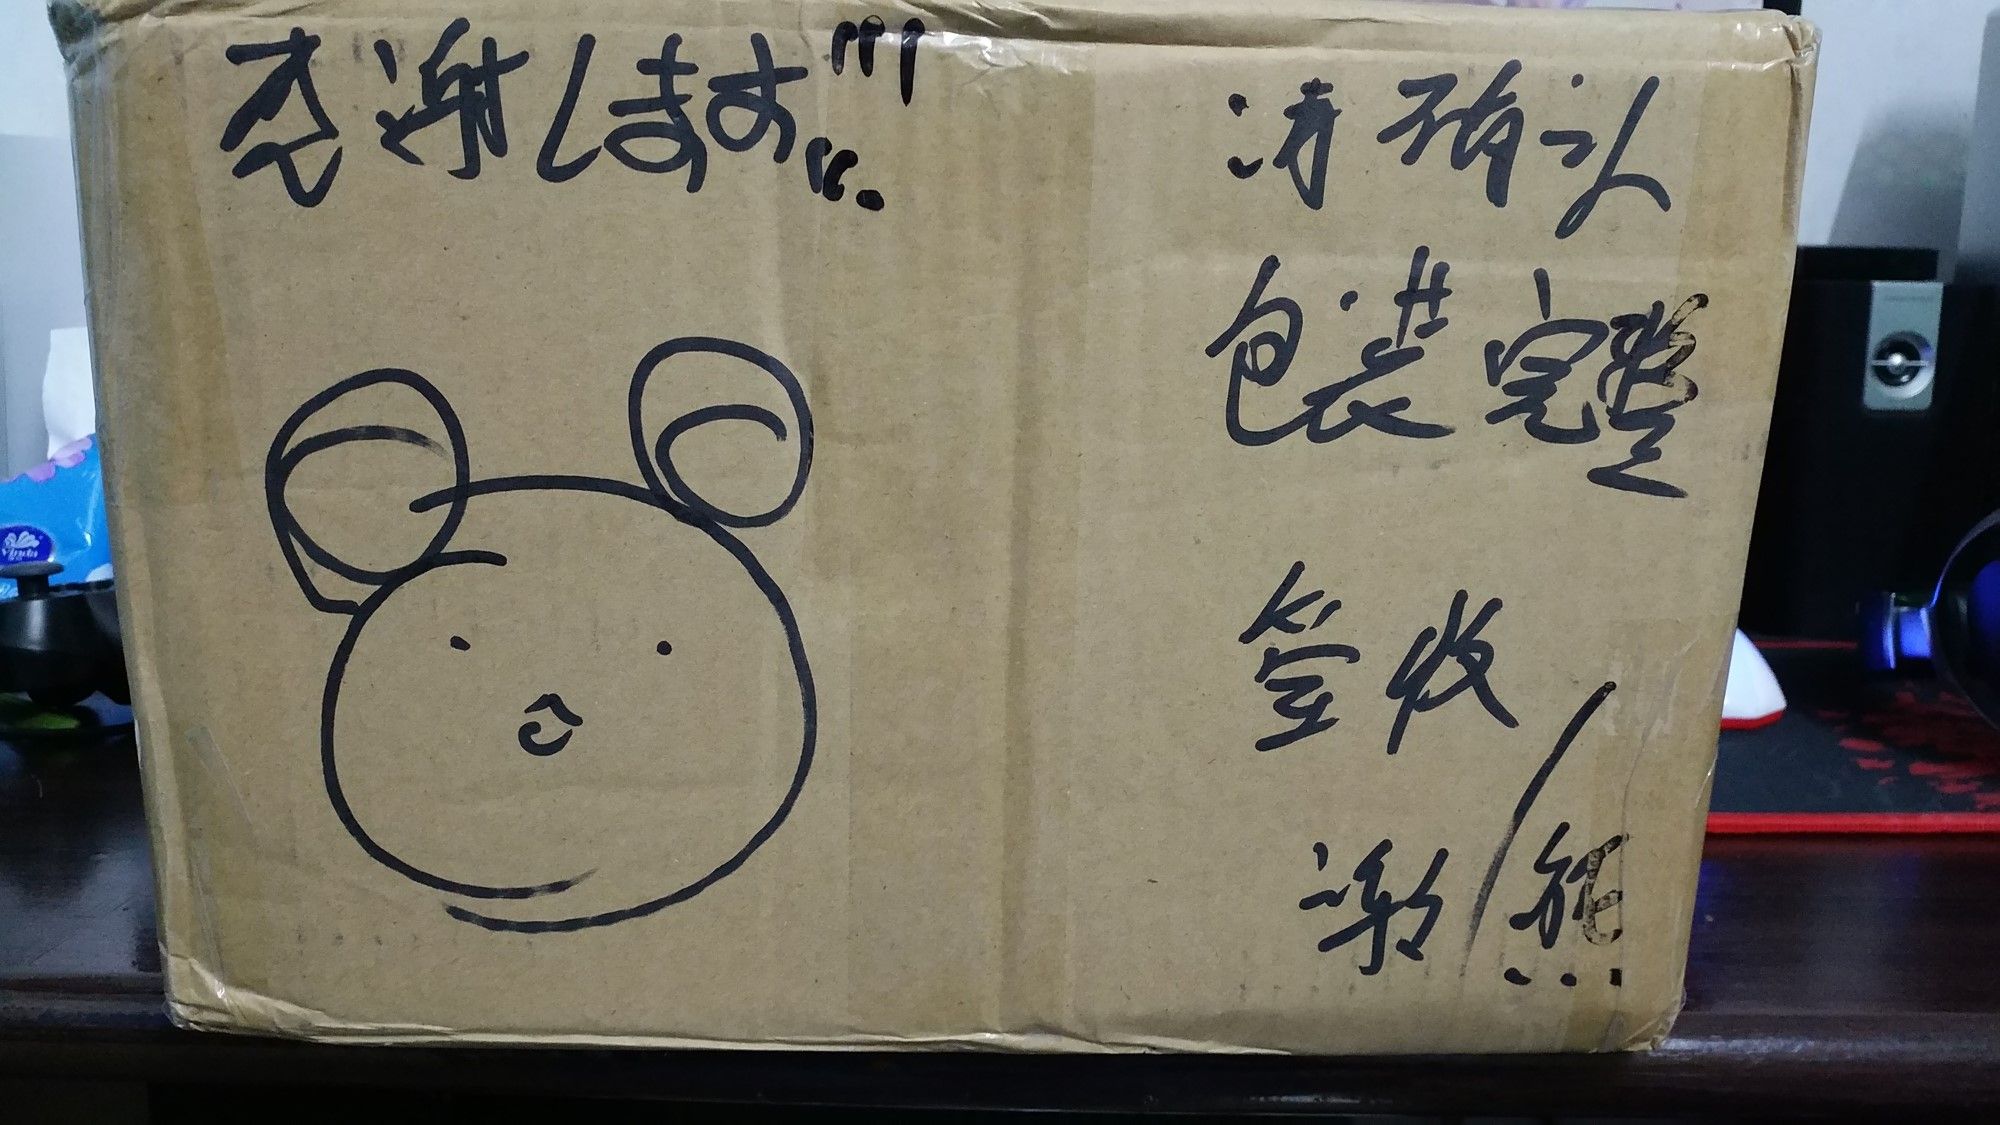 感谢します!!!
请确认
包装完整
签收
谢/熊
Vinda